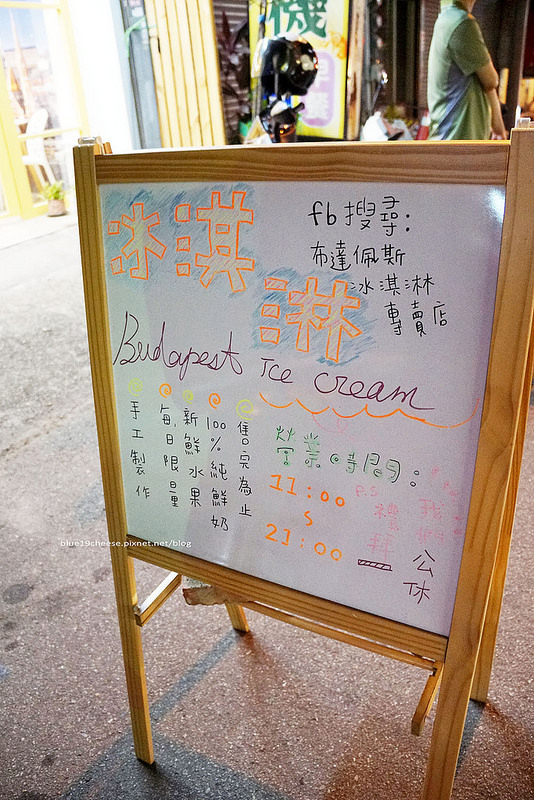 機
冰淇淋
fb搜尋:
布達佩斯
冰淇淋
專賣店
Budapest Ice cream
手工製作
每日限量
新鮮水果
100%純鮮奶
售完為止
營業時間:
11:00
21:00
P.S
我們
禮拜一
公休
blue19cheese.pixnet.net/blog